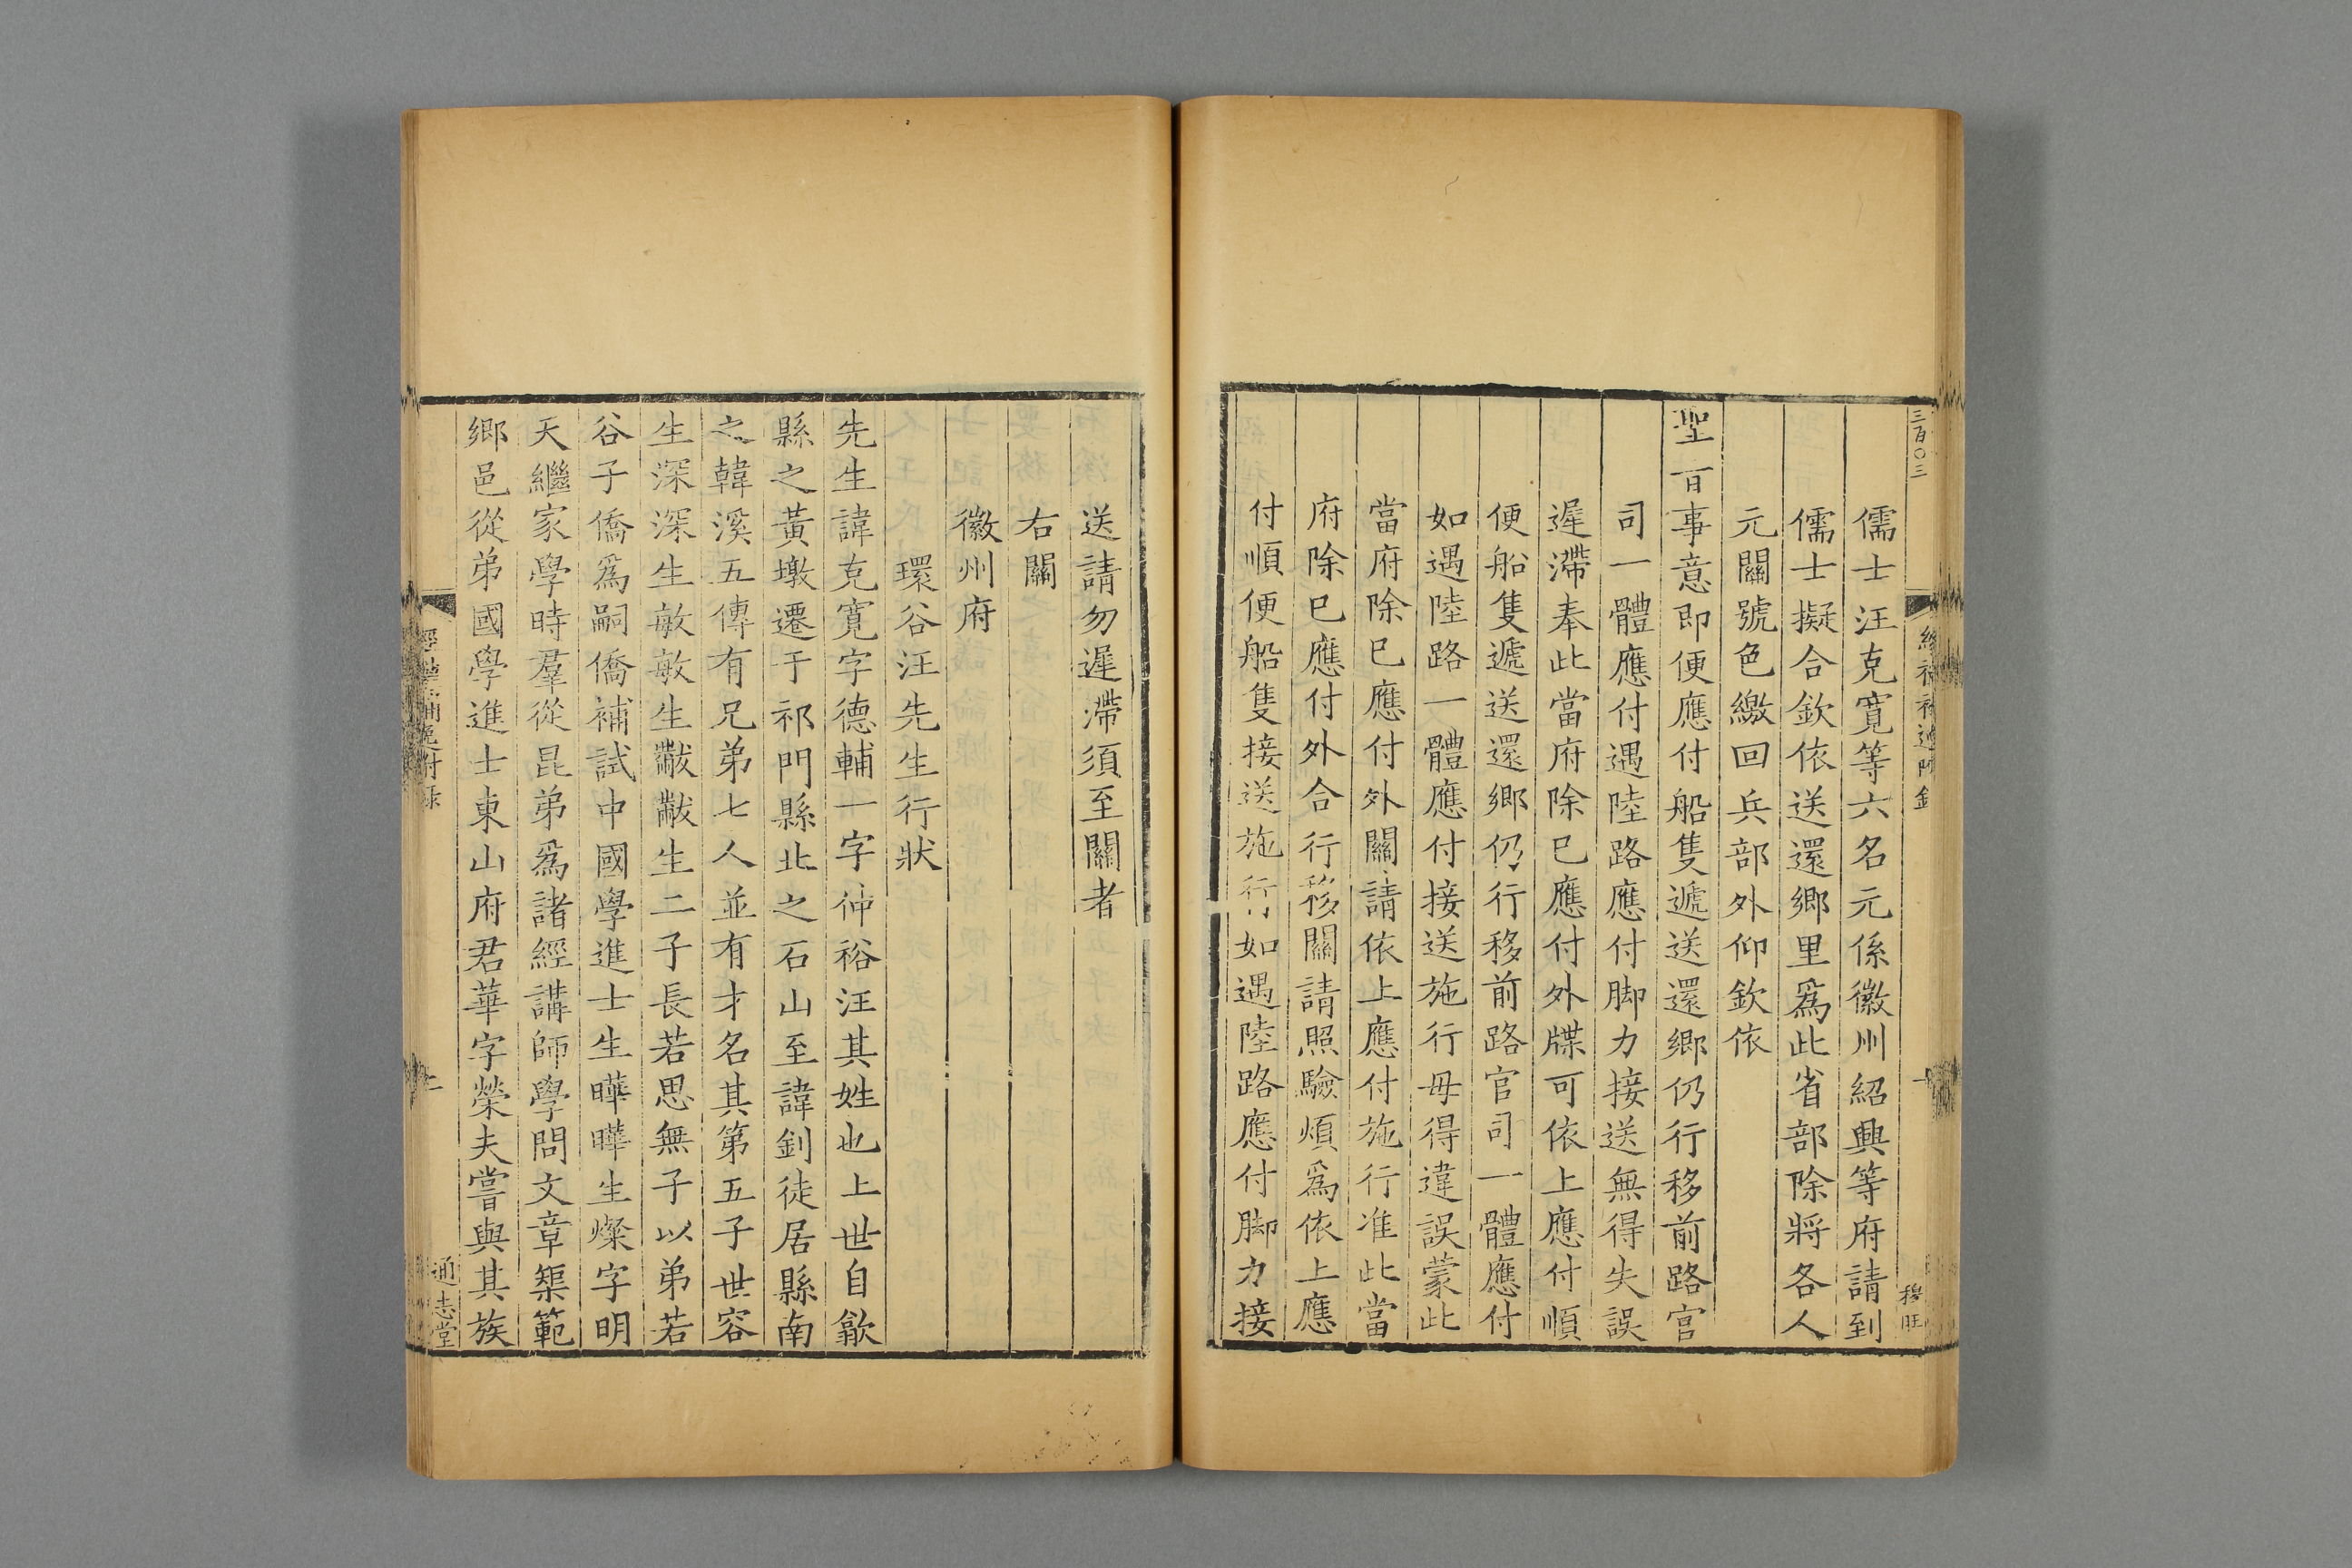 三百〇三
儒士汪克寬等六名元係徽州紹興等府請到
儒士擬合欽依送還鄉里爲此省部除將各人
元關號色繳回兵部外仰欽依
聖旨事意即便應付船隻遞送還鄉仍行移前路官
司一體應付遇陸路應付脚力接送無得失誤
遲滯奉此當府除已應付外牒可依上應付順
便船隻遞送還鄉仍行移前路官司一體應付
如遇陸路一體應付接送施行毋得違誤蒙此
當府除已應付外關請依上應付施行准此當
府除已應付外合行移關請照驗煩爲依上應
付順便船隻接送施行如遇陸路應付脚力接
送請勿遲滯須至關者
右關
徽州府
環谷汪先生行狀
先生諱克寬字德輔一字仲裕汪其姓也上世自歙
縣之黃墩遷于祁門縣北之石山至諱釗徒居縣南
之韓溪五傳有兄弟七人並有才名其第五子世容
生深深生敏敏生黻黻生二子長若思無子以弟若
谷子僑爲嗣僑補試中國學進士生曄曄生燦字明
夫繼家學時羣從昆弟爲諸經講師學問文章榘範
鄉邑從弟國學進士東山府君華字榮夫嘗與其族
通志堂